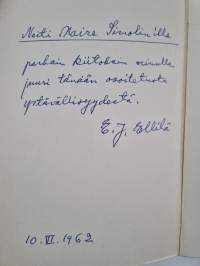 Neiti Maire Simolinille
parhain kiitoksin minulle
juuri tänään osoitetusta
ystävällisyydestä.
E. J. Ellilä
10.VI.1962